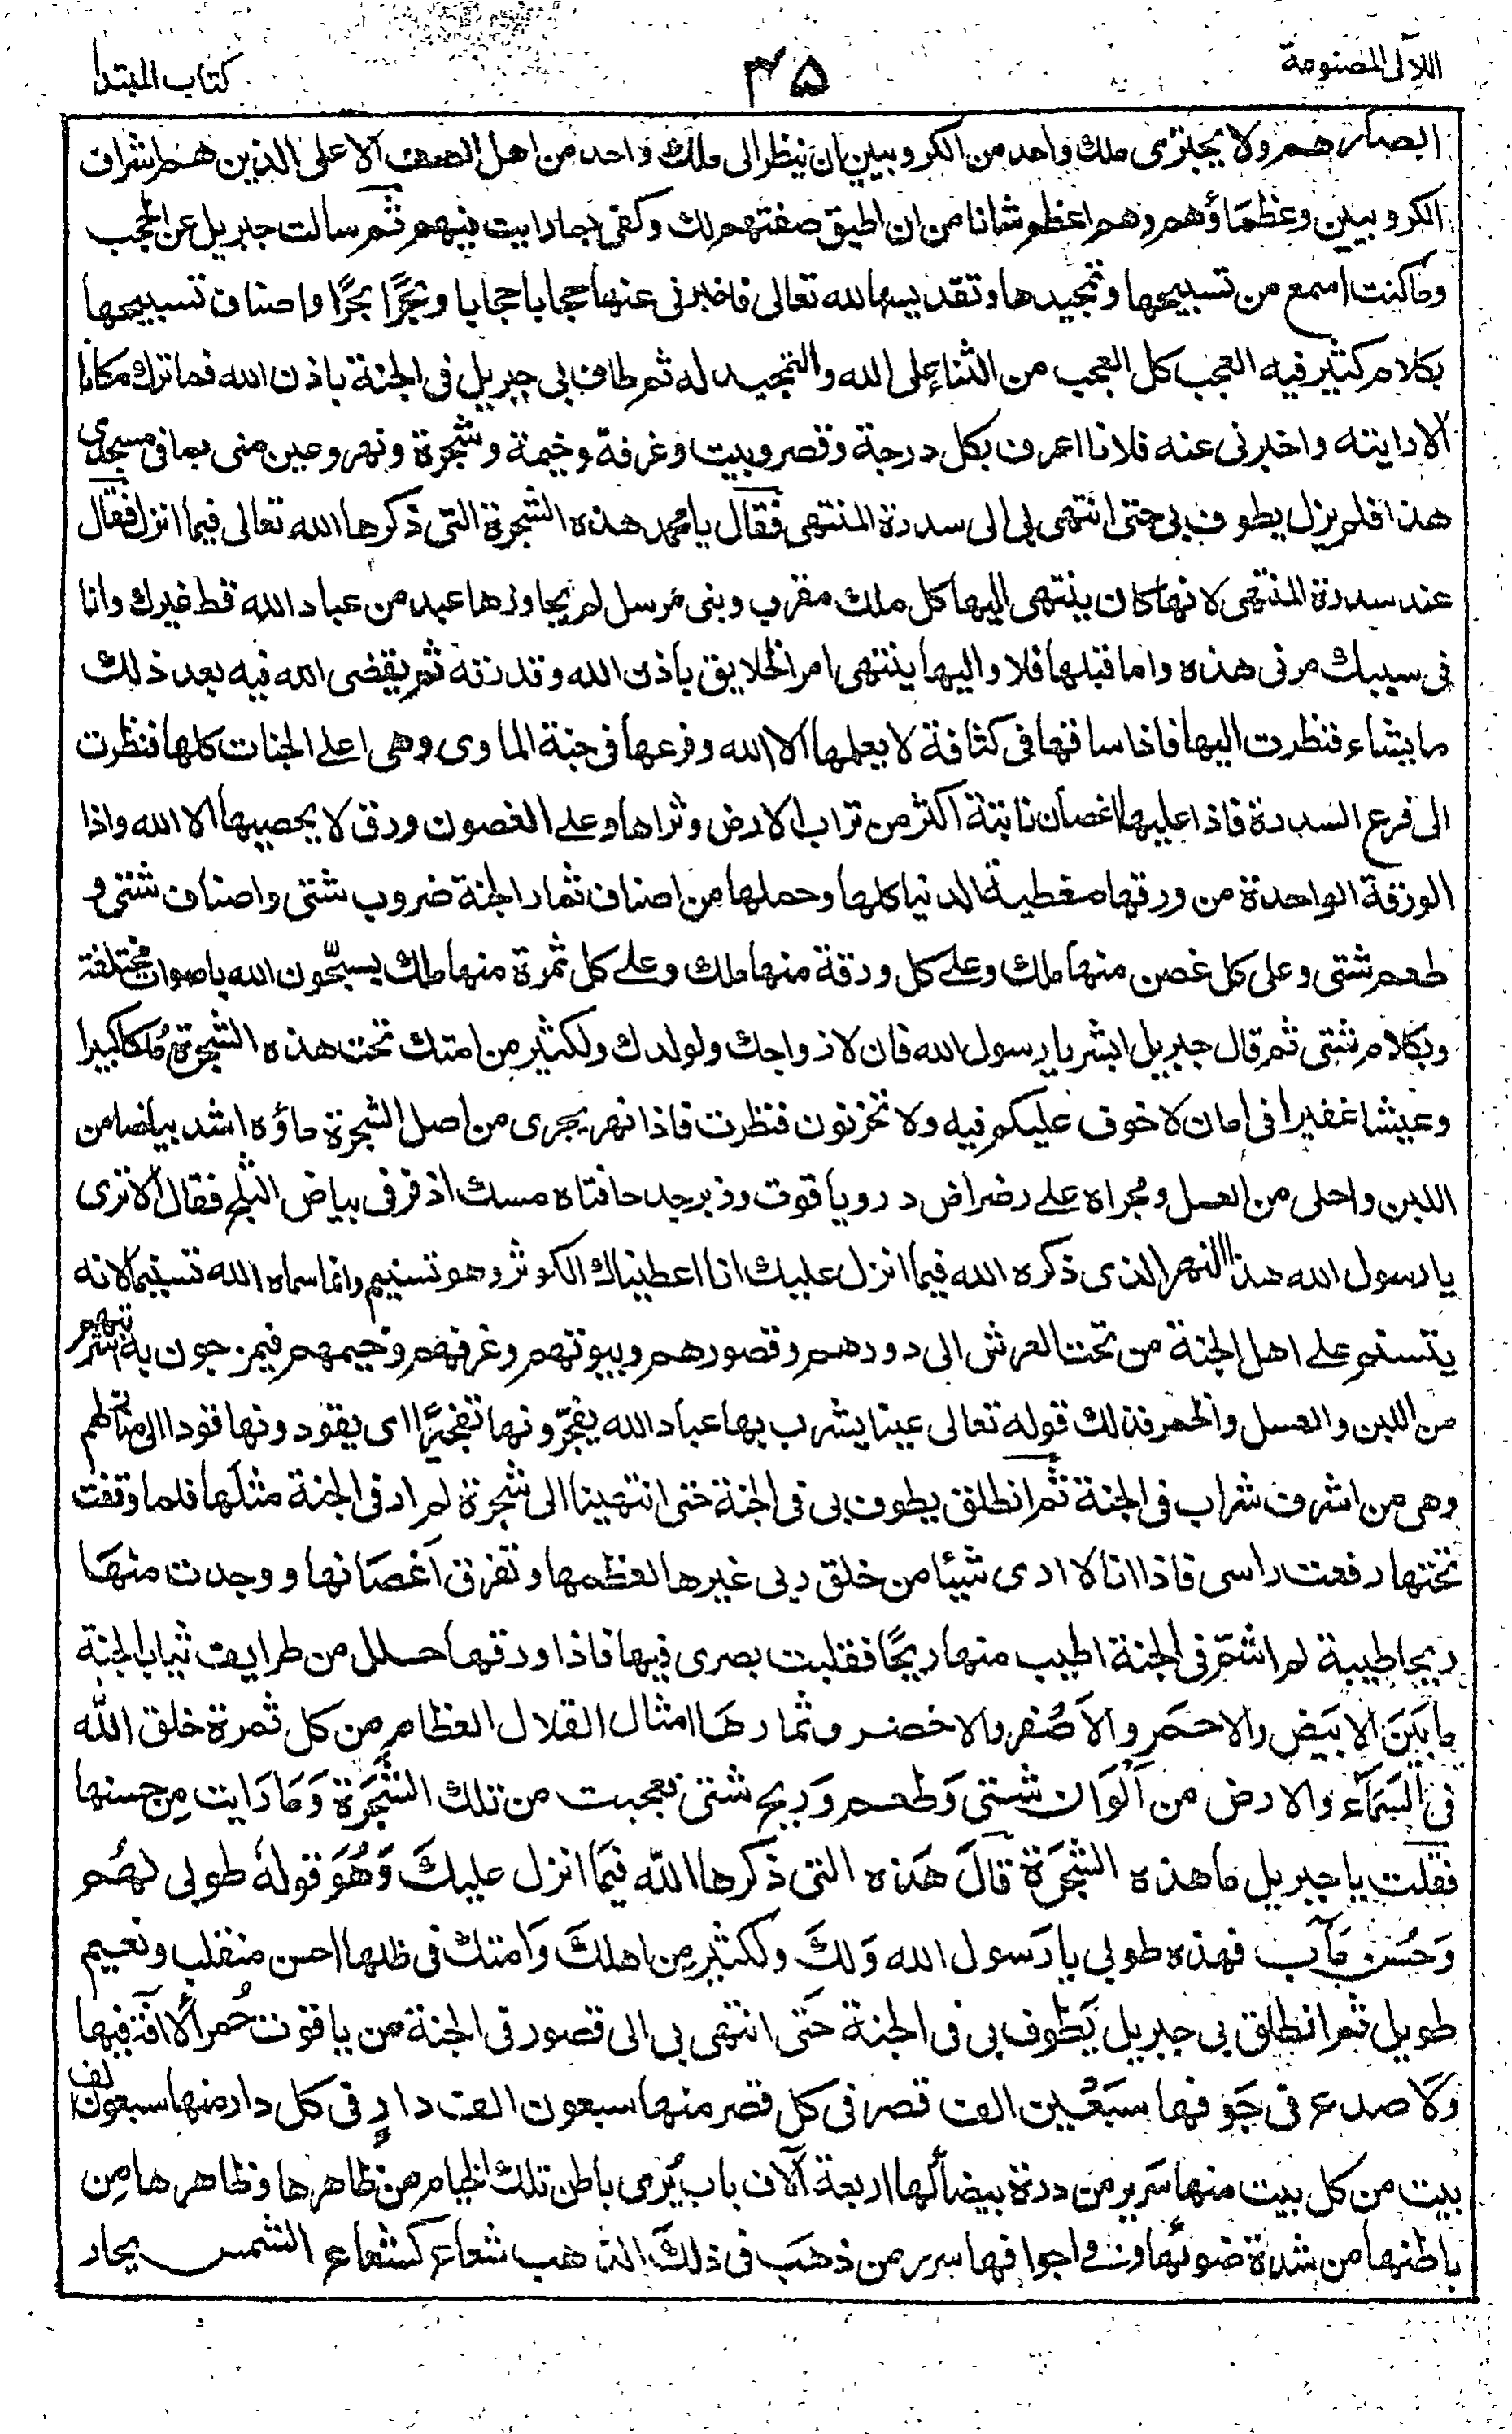 اللآلى المصنوعة
٣٥
كتاب المبتدا
ابصارهم ولا يجترى ملك واحد من الكروبيين ان ينظر الى ملك واحد من اهل الصف الاعلى الذين هم اشراف
الكروبيين وعظماؤهم وهم اعظم شانا من ان اطيق صفتهم لك وكفى بما رايت فيهم ثم سالت جبريل عن الحجب
وما كنت اسمع من تسبيحها وتمجيدها وتقديسها لله تعالى فاخبرنى عنها حجابا حجابا وبحرًا بحرًا واصناف تسبيحها
بكلام كثير فيه العجب كل العجب من الثناء على الله والتمجيد له ثم طاف بى جبريل فى الجنة باذن الله فما ترك مكانا
الا رايته واخبرنى عنه فلانا اعرف بكل درجة وقصر وبيت وغرفة وخيمة وشجرة ونهر وعين منى بما فى مسجدى
هذا فلم يزل يطوف بى حتى انتهى بى الى سدرة المنتهى فقال يا محمد هذه الشجرة التى ذكرها الله تعالى فيما انزل فقال
عند سدرة المنتهى لانها كان ينتهى اليها كل ملك مقرب ونبى مرسل لم يجاوزها عبد من عباد الله قط غيرك وانا
فى سببك مرتى هذه واما قبلها فلا واليها ينتهى امر الخلايق باذن الله وقدرته ثم يقضى الله فيه بعد ذلك
ما يشاء فنظرت اليها فاذا ساقها فى كثافة لا يعلمها الا الله وفرعها فى جنة الماوى وهى اعلى الجنات كلها فنظرت
الى فرع السدرة فاذا عليها اغصان نابتة اكثر من تراب الارض وثراها وعلى الغصون ورق لا يحصيها الا الله واذا
الورقة الواحدة من ورقها مغطية الدنيا كلها وحملها من اصناف ثمار الجنة ضروب شتى واصناف شتى و
طعم شتى وعلى كل غصن منها ملك وعلى كل ورقة منها ملك وعلى كل ثمرة منها ملك يسبّحون الله باصوات مختلفة
وبكلام شتى ثم قال جبريل ابشر يا رسول الله فان لازواجك ولولدك ولكثير من امتك تحت هذه الشجرة ملكا كبيرا
وعيشا غفيرا فى امان لا خوف عليكم فيه ولا تحزنون فنظرت فاذا نهر يجرى من اصل الشجرة ماؤه اشد بياضا من
اللبن واحلى من العسل ومجراه على رضراض در وياقوت وزبرجد حافتاه مسك اذفر فى بياض الثلج فقال الا ترى
يا رسول الله هذا النهر الذى ذكره الله فيما انزل عليك انا اعطيناك الكوثر وهو تسنيم وانما سماه الله تسنيما لانه
يتسنم على اهل الجنة من تحت العرش الى دورهم وقصورهم وبيوتهم وغرفهم وخيمهم فيمزجون به اشربتهم
من اللبن والعسل والخمر فذلك قوله تعالى عينا يشرب بها عباد الله يفجّرونها تفجيرًا اى يقودونها قودا الى منازلهم
وهى من اشرف شراب فى الجنة ثم انطلق يطوف بى فى الجنة حتى انتهينا الى شجرة لم ار فى الجنة مثلها فلما وقفت
تحتها رفعت راسى فاذا انا لا ارى شيئا من خلق ربى غيرها لعظمها وتفرق اغصانها ووجدت منها
ريحا طيبة لم اشمّ فى الجنة اطيب منها ريحًا فقلبت بصرى فيها فاذا ورقها حلل من طرايف ثياب الجنة
ما بَيْنَ الابيَض والاحمَر والاَصْفر والاخضر وثمارهَا امثال القلال العظام من كل ثمرة خلق الله
فى السَمآء والارض من اَلْوَان شتى وَطعم وَريح شتى فعجبت من تلك الشَّجَرة وَمَا رَايت مِن حسنها
فقلت يا جبريل ما هذه الشجَرَة قالَ هَذه التى ذكرها اللّٰه فيمَا انزل عليكَ وَهُوَ قوله طوبى لهُم
وَحُسْن مَآب فهذه طوبى يا رَسول الله وَلكَ ولكثير مِن اهلكَ وَامتك فى ظلها احسن منقلب ونعيم
طويل ثم انطلق بى جبريل يَطوف بى فى الجنة حَتى انتهى بى الى قصور فى الجنة من ياقوت حُمر لَا آفة فيها
وَلَا صدع فى جَوفها سَبْعين الف قصر فى كل قصر منها سبعون الف دارٍ فى كل دار منها سبعون الف
بيت من كل بيت منها سَرير من درة بيضآ لها اربعة آلاف باب يُرى باطن تلك الخيام من ظاهرها وظاهرها مِن
باطنها من شدة ضوئها وفى اجوافها سرر من ذهَب فى ذلكَ الذهب شعاع كشعاع الشمس يحار